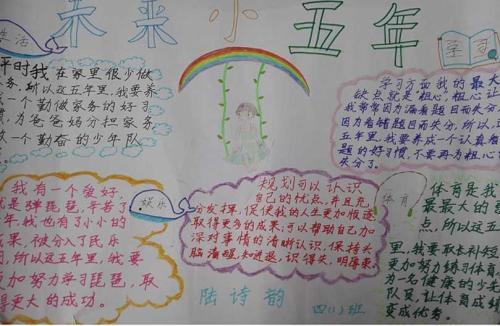 未来小五年
生活
平时我在家里很少做
家务,所以这五年里,我要养
一个勤做家务的好习
为爸爸妈分担家务
做一个勤奋的少年队
学习
学习方面我的最大
缺点就是粗心,粗心让
我常常因为漏题目而失分,
因为看错题目而失分,所以,这
五年里,我要养成一个认真看
题的好习惯,不要再为粗心
失分了。
我有一个爱好,
就是弹琵琶,辛苦了
年,我也有了小小的
果,被分入了民乐
所以这五年里,我要
加努力学习琵琶,取
得更大的成功。
娱乐
规划可以认识
自己的优点,并且充
分发挥,促使我的人生更加顺速
取得更多的成果;可以帮助自己加
深对事情的清晰认识,保持头
脑清醒,知进退,识得失,明得裹
体育
体育是我
最最大的
点,所以这五
里,我要取长补短
更加努力练习体育
为一名健康的少先
队员,让体育成绩
变成优秀。
陆诗韵
四(1)班